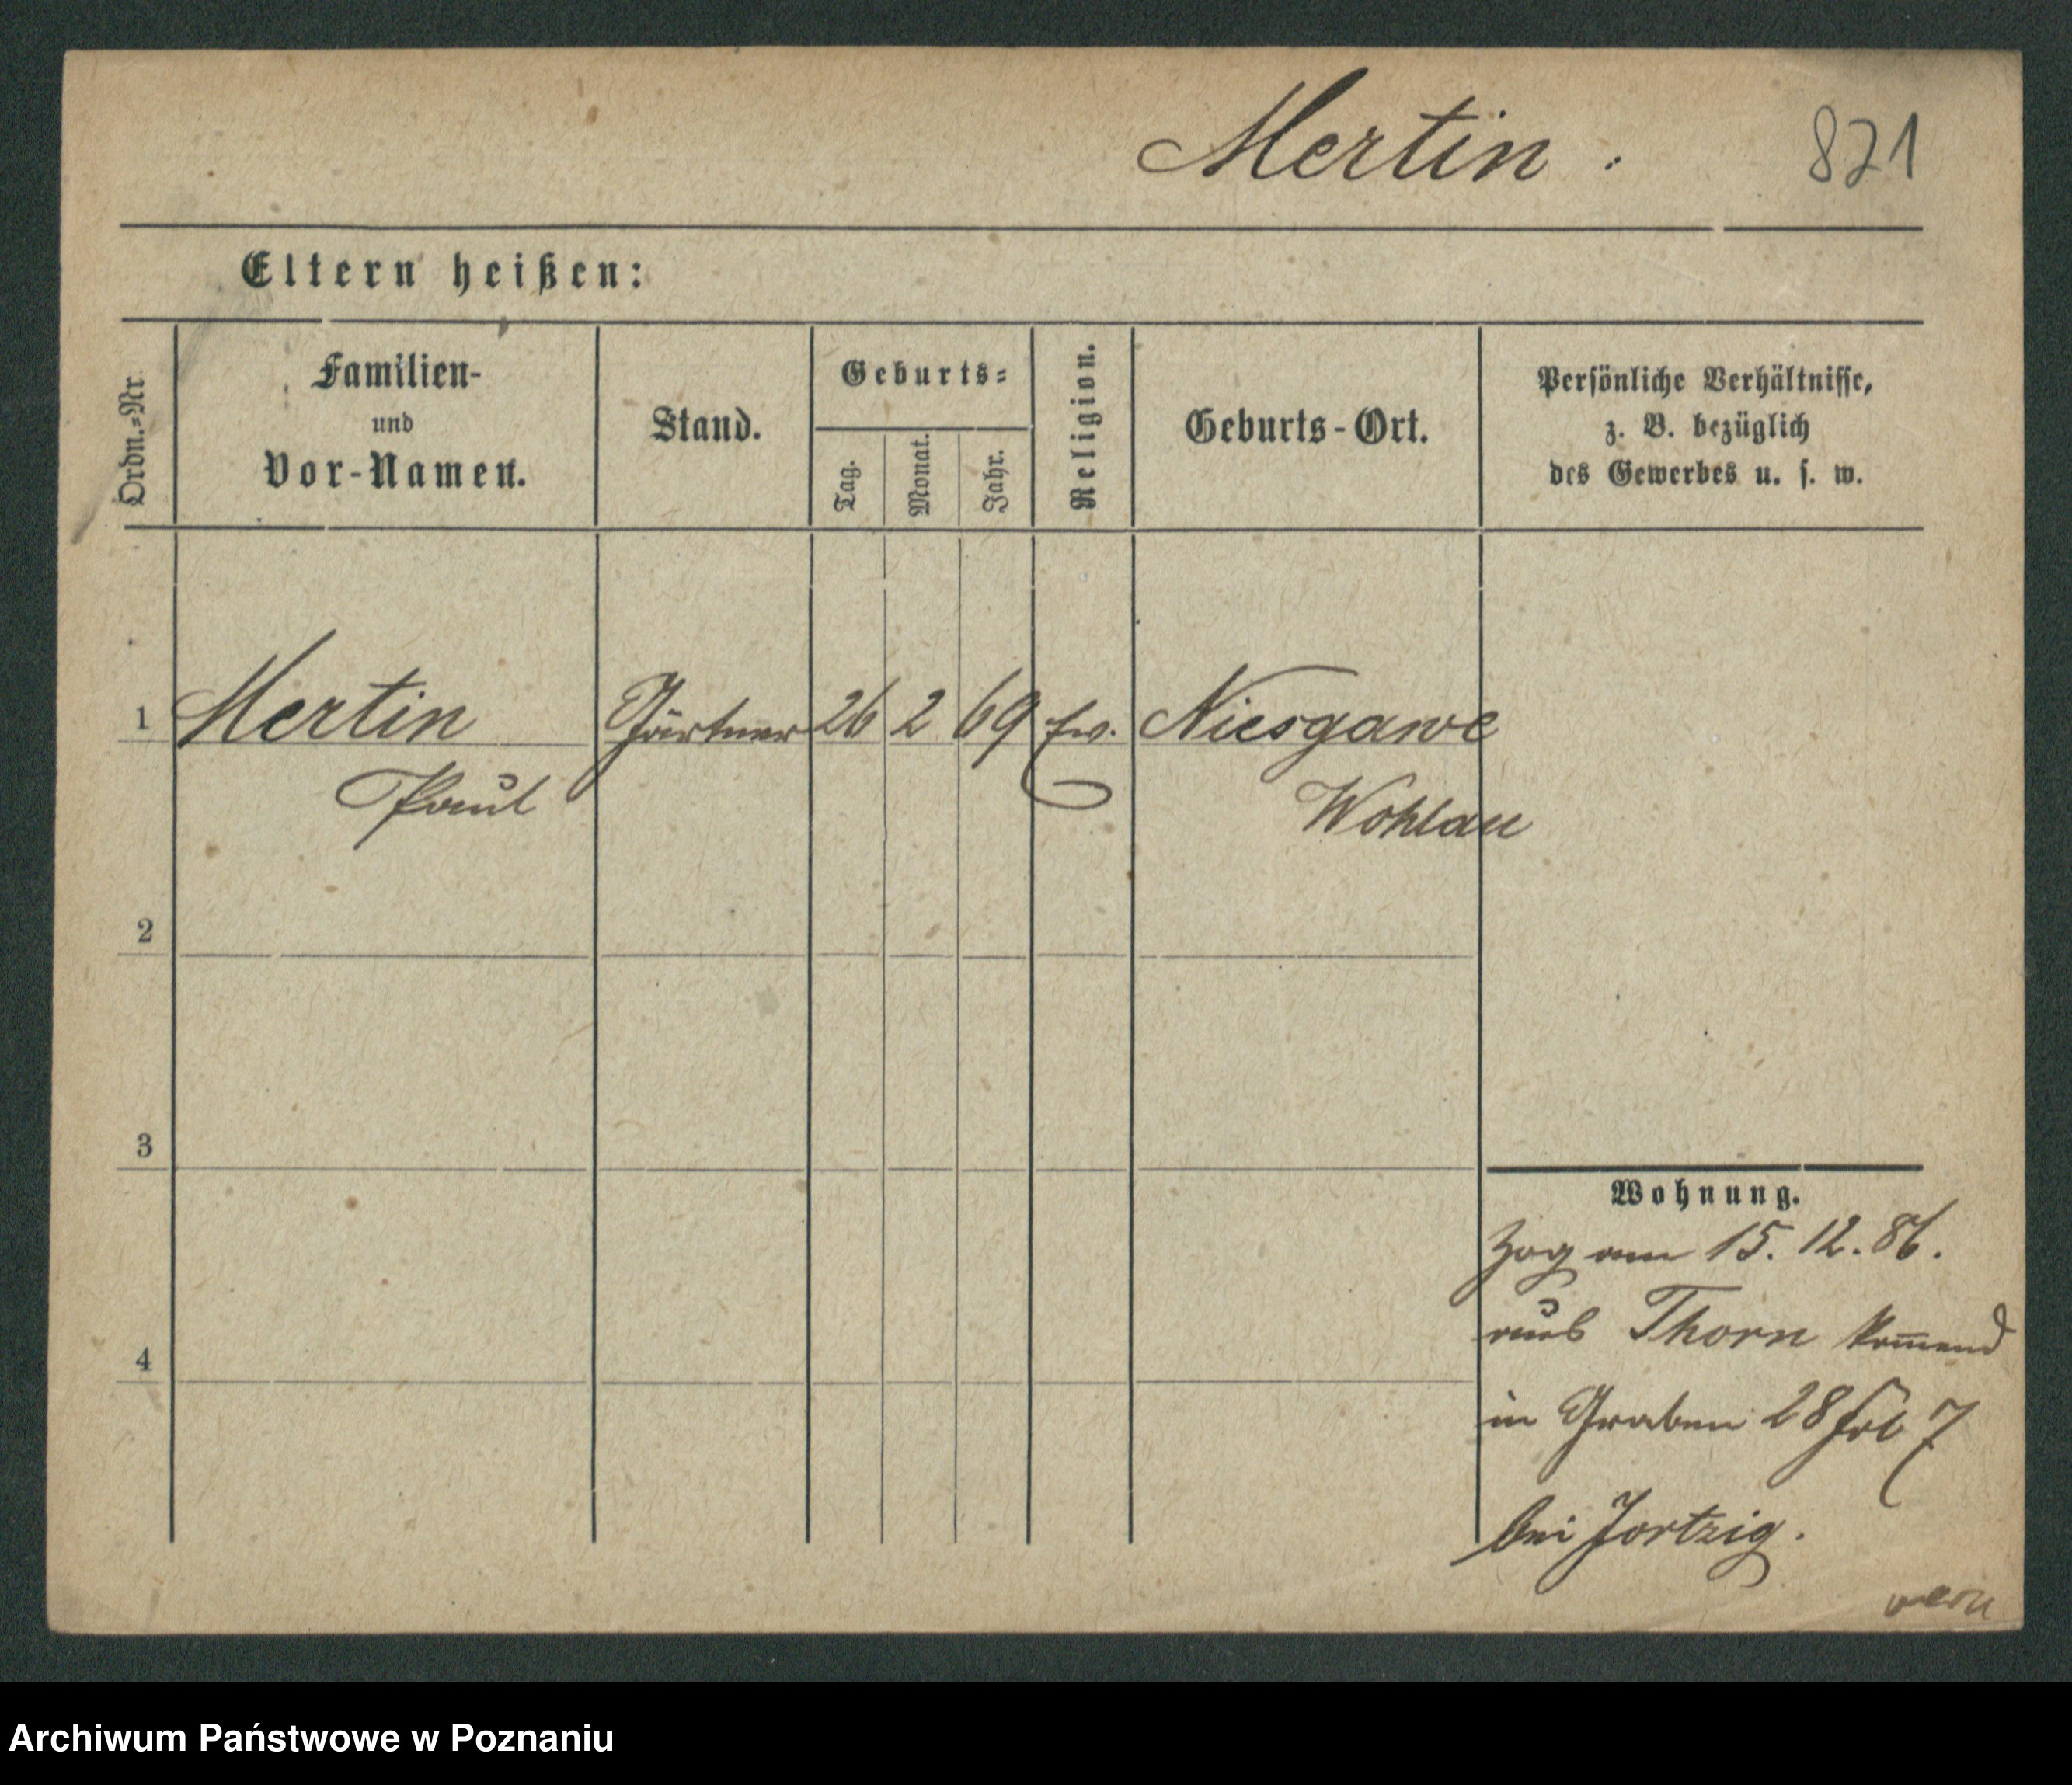 Mertin. 821
Eltern heißen:
Ordn.-Nr.
Familien-
und
Vor-Namen.
Stand.
Geburts-
Tag.
Monat.
Jahr.
Religion.
Geburts-Ort.
Persönliche Verhältnisse,
z. B. bezüglich
des Gewerbes u. s. w.
1 Mertin Gärtner 26 2 69 Ev. Niesgawe
Paul Wohlau
2
3
4
Wohnung.
Zog am 15. 12. 86.
aus Thorn kom̅end
in Graben 28 7
bei Jortzig.
Archiwum Państwowe w Poznaniu